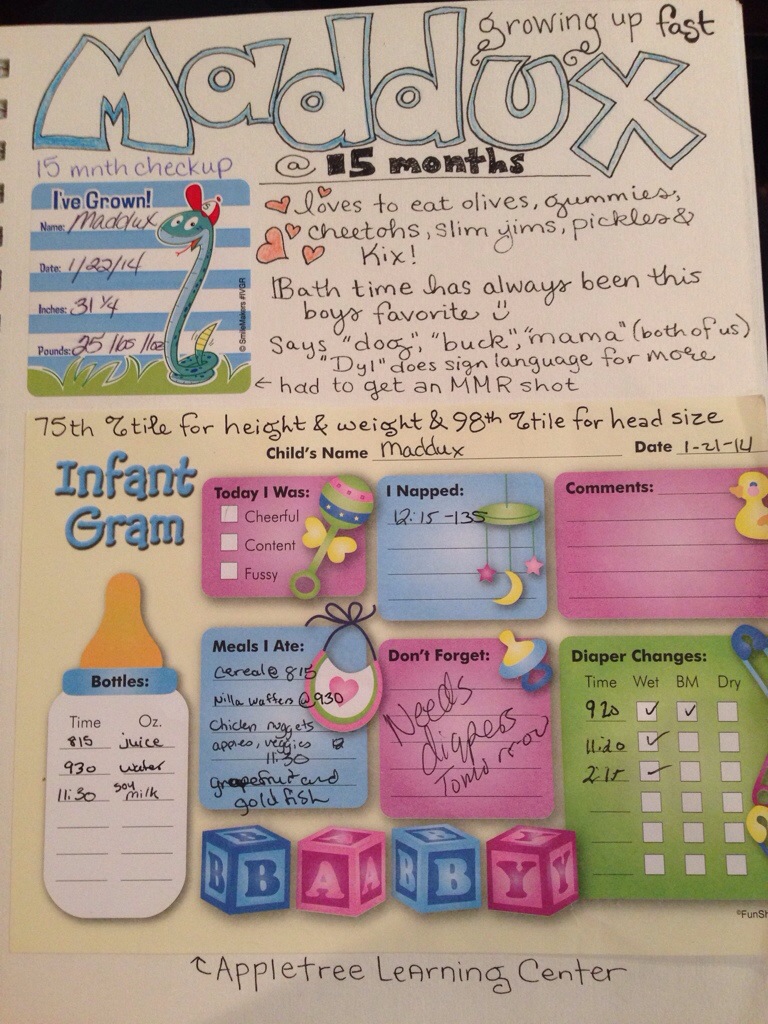 growing up fast
Maddux
15 mnth checkup
@ 15 months
I've Grown!
Name: Maddux
Date: 1/22/14
Inches: 31 1/4
Pounds: 25 lbs 11oz
©SmileMakers #IVGR
loves to eat olives, gummies,
cheetohs, slim jims, pickles &
Kix!
Bath time has always been this
boys favorite
Says "dog", "buck", "mama" (both of us)
"Dyl" does sign language for more
← had to get an MMR shot
75th %tile for height & weight & 98th %tile for head size
Child's Name Maddux Date 1-21-14
Infant
Gram
Today I Was:
Cheerful
Content
Fussy
I Napped:
12:15-135
Comments:
Bottles:
Time Oz.
815 juice
930 water
11:30 soy milk
Meals I Ate:
cereal @ 815
Nilla waffers @ 930
Chicken nuggets
apples, veggies
11:30
grapefruit and
gold fish
Don't Forget:
Needs
diapers
Tomorrow
Diaper Changes:
Time Wet BM Dry
920 ✓ ✓
11:20 ✓
2:15 ✓
B B A A B B Y Y
©FunSh
Appletree Learning Center